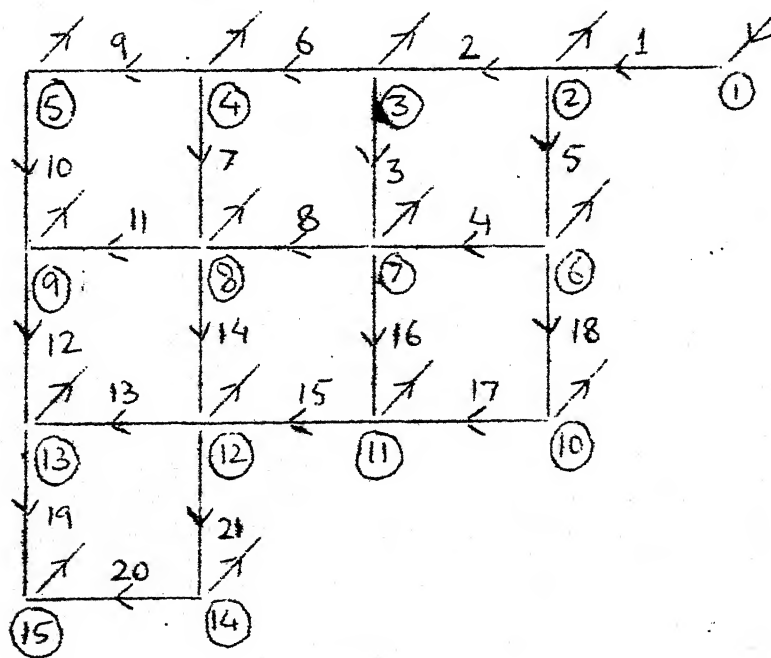 9 6 2 1
5 4 3 2 1
10 7 3 5
11 8 4
9 8 7 6
12 14 16 18
13 15 17
13 12 11 10
19 21
20
15 14